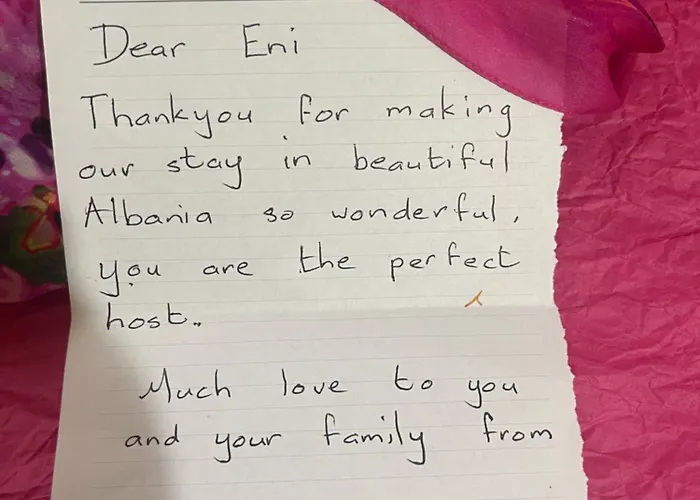 Dear Eni
Thankyou for making
our stay in beautiful
Albania so wonderful,
you are the perfect
host..
Much love to you
and your family from